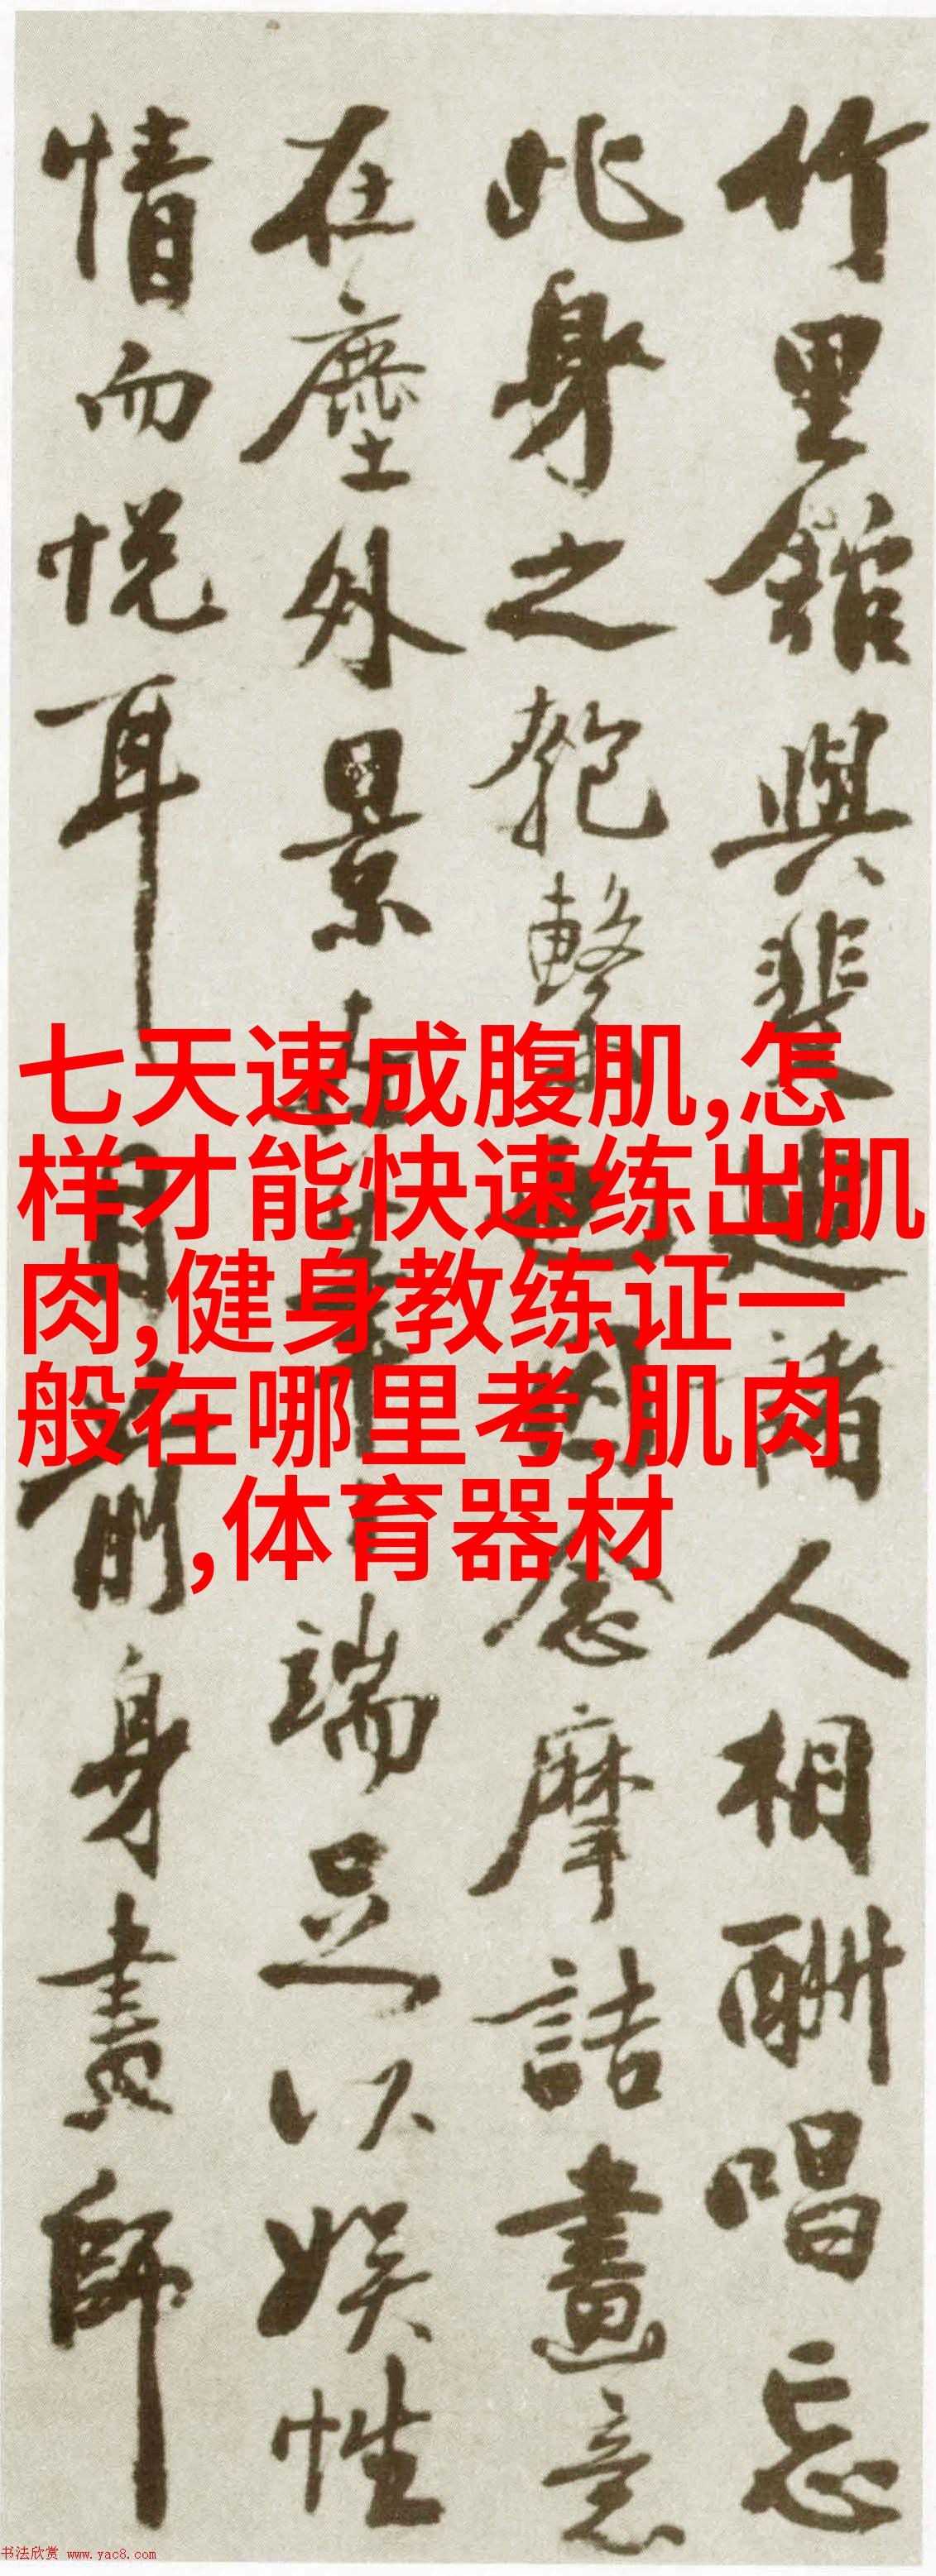 竹里館與裴迪諸人相酬唱忘
此身之匏繫也因念摩詰畫意
在塵外景端足以娛性
情而悅耳目前身畫師
七天速成腹肌,怎
样才能快速练出肌
肉,健身教练证一
般在哪里考,肌肉
,体育器材
书法欣赏 www.yac8.com